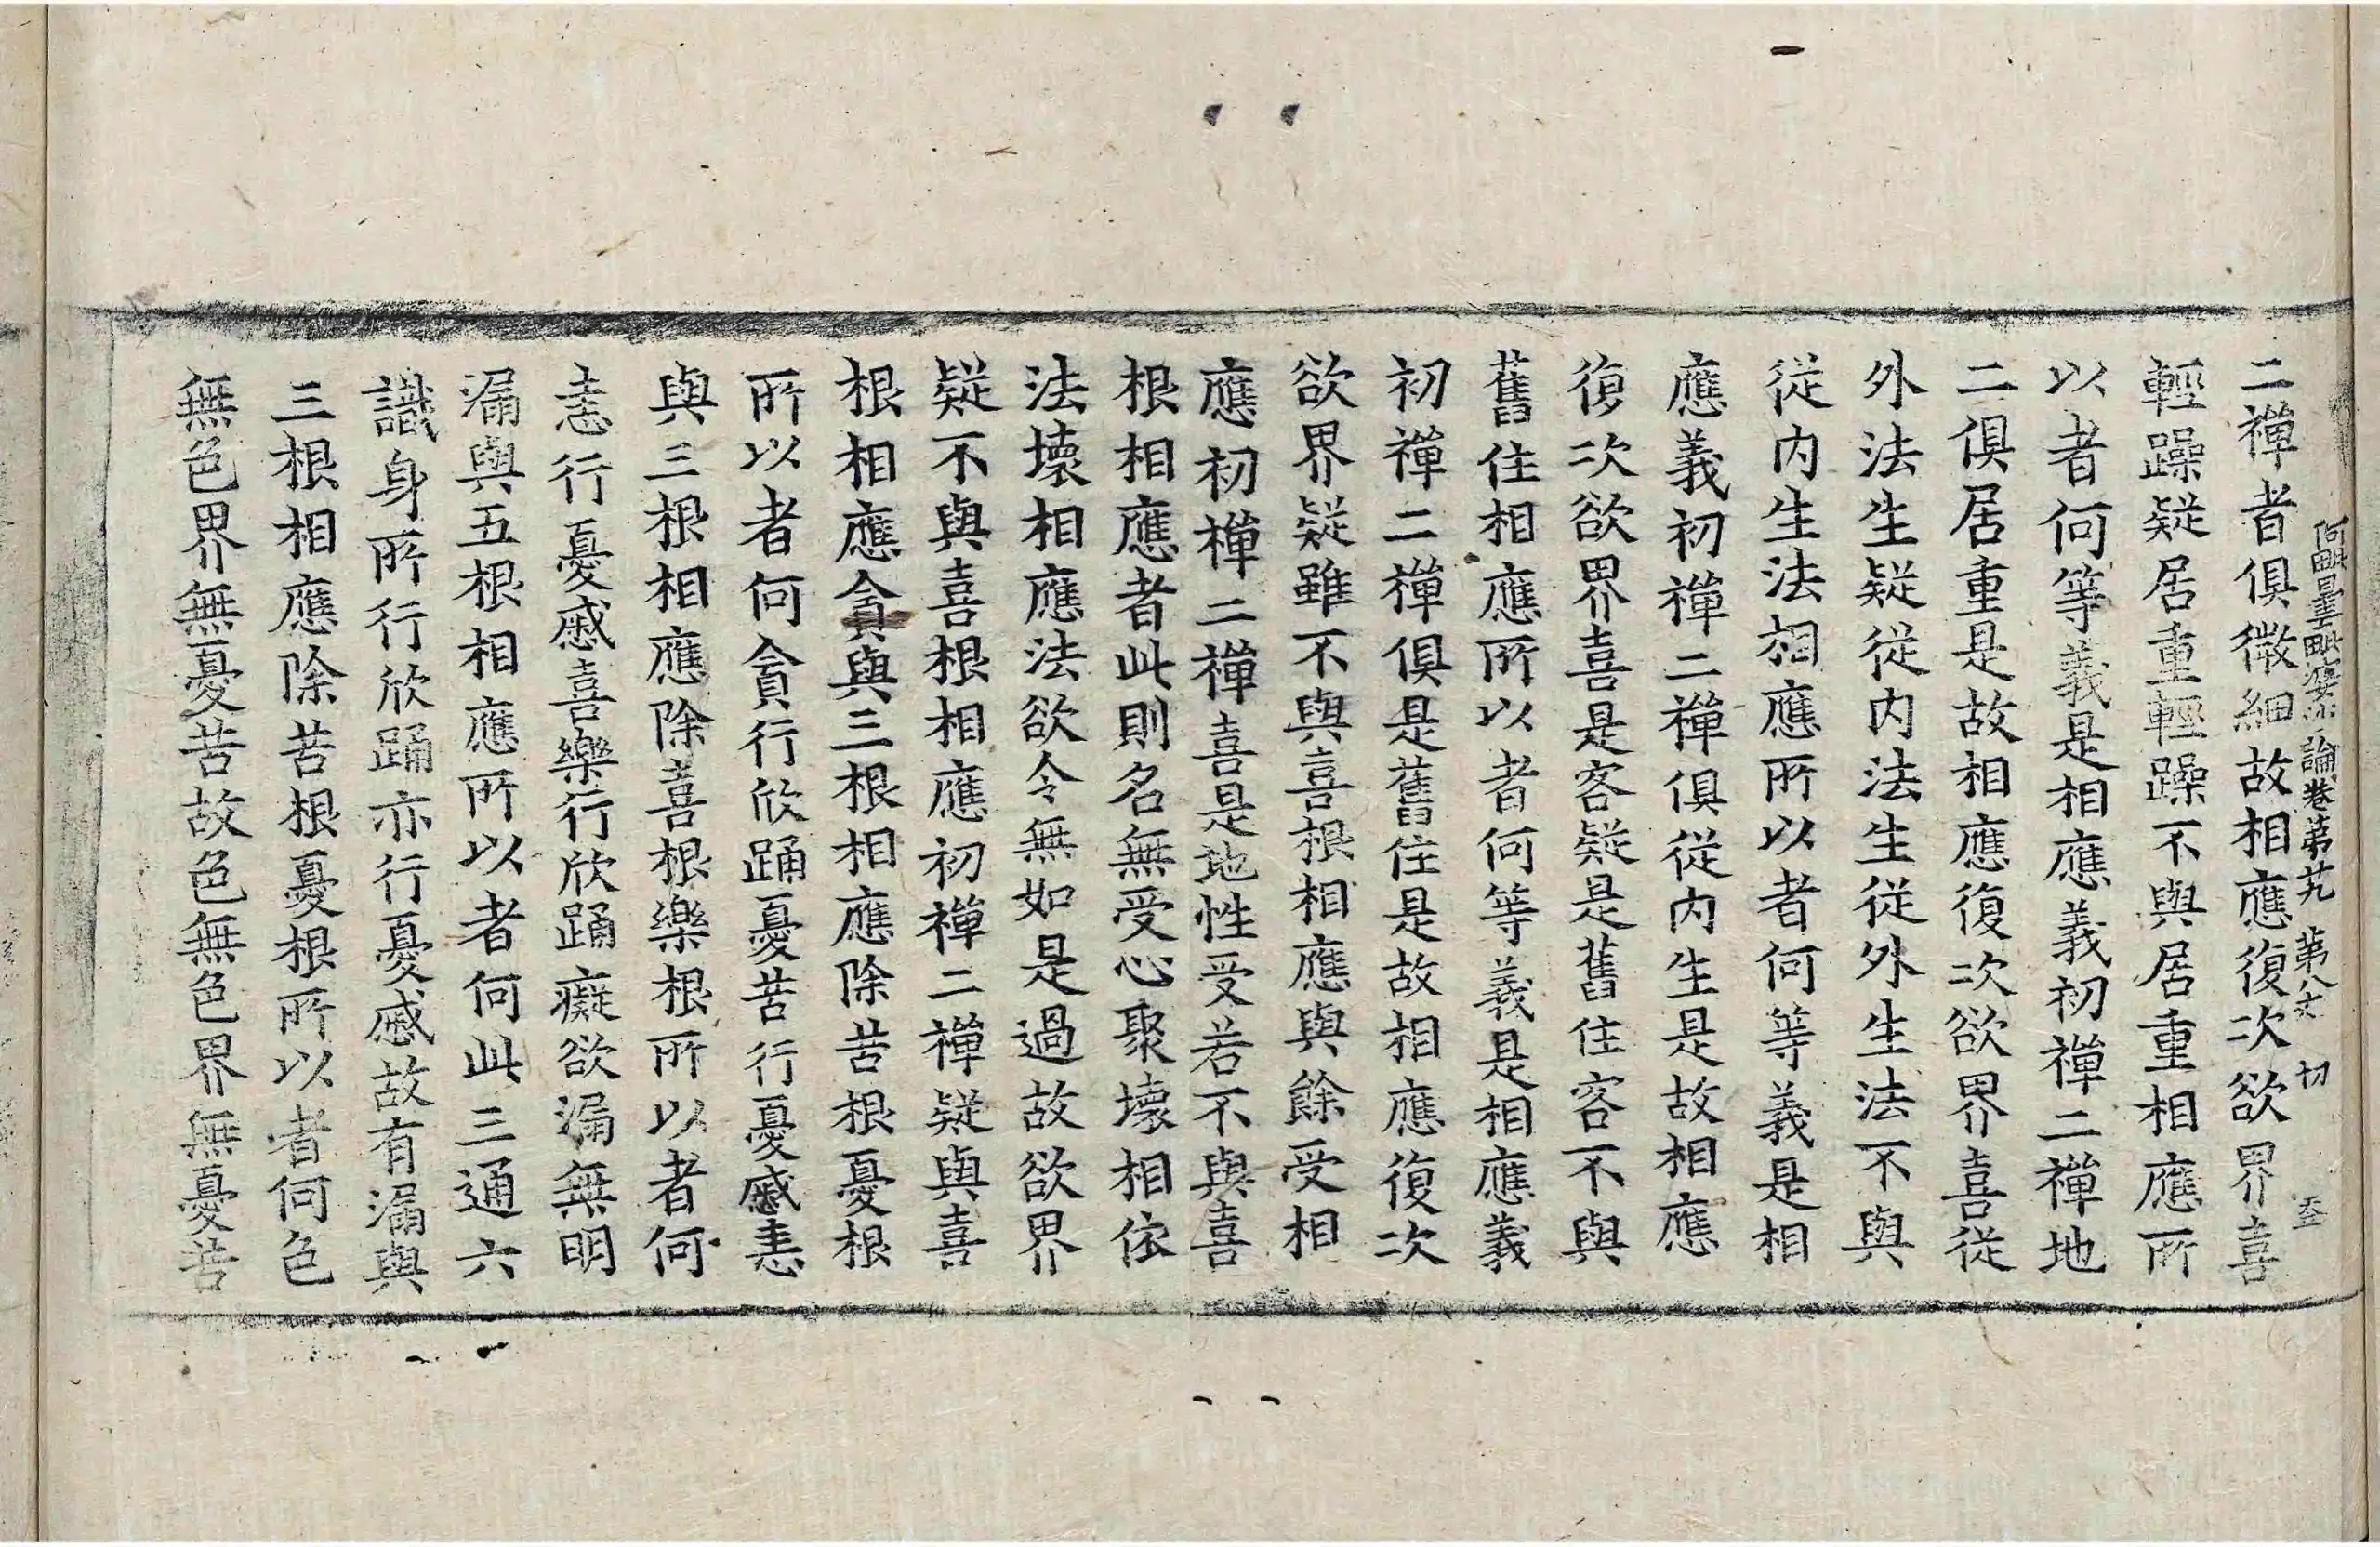 阿毗曇毗婆沙論卷第廿九　第八丈　切
二禪者俱微細故相應復次欲界喜
輕躁疑居重輕躁不與居重相應所
以者何等義是相應義初禪二禪地
二俱居重是故相應復次欲界喜從
外法生疑從内法生從外生法不與
從内生法相應所以者何等義是相
應義初禪二禪俱從内生是故相應
復次欲界喜是客疑是舊住客不與
舊住相應所以者何等義是相應義
初禪二禪俱是舊住是故相應復次
欲界疑雖不與喜根相應與餘受相
應初禪二禪喜是地性受若不與喜
根相應者此則名無受心聚壞相依
法壞相應法欲令無如是過故欲界
疑不與喜根相應初禪二禪疑與喜
根相應貪與三根相應除苦根憂根
所以者何貪行欣踊憂苦行憂慼恚
與三根相應除喜根樂根所以者何
恚行憂慼喜樂行欣踊癡欲漏無明
漏與五根相應所以者何此三通六
識身所行欣踊亦行憂慼故有漏與
三根相應除苦根憂根所以者何色
無色界無憂苦故色無色界無憂苦